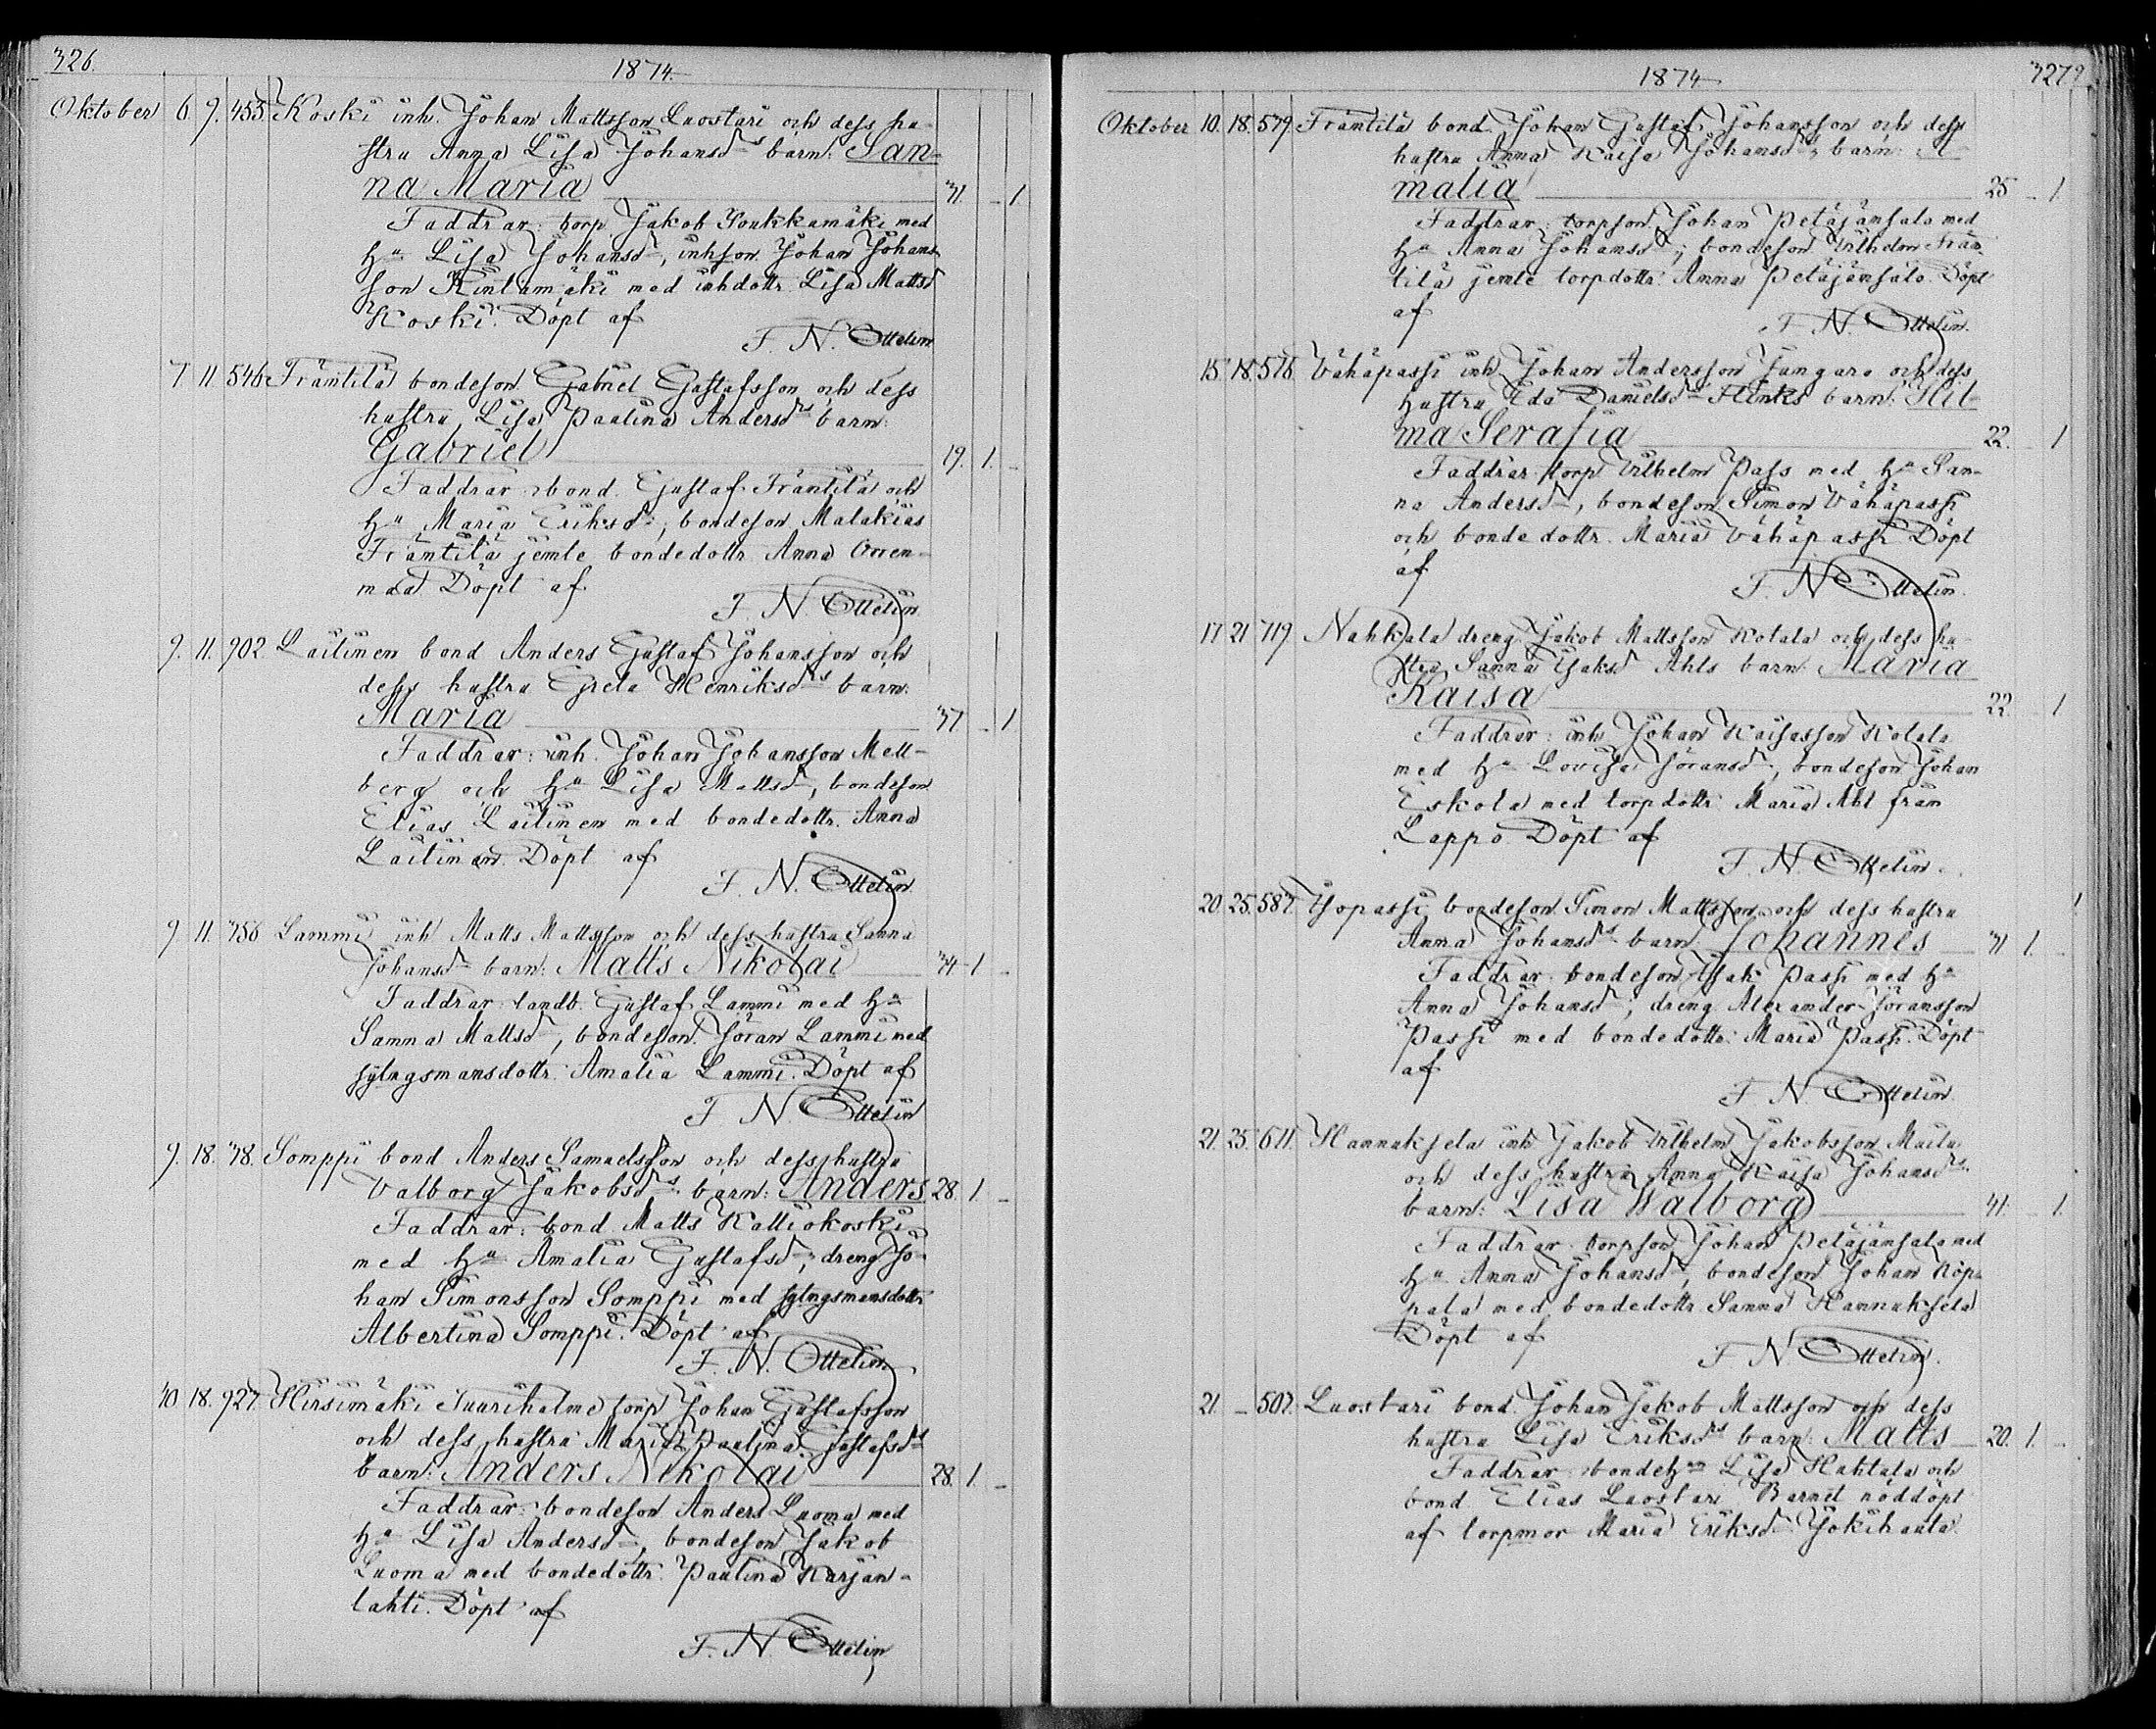 326.
1874.
Oktober 6. 9. 455. Koski inh. Johan Mattsson Luostari och dess hu-
stru Anna Lisa Johansdrs barn: San-
na Maria 31. – 1
Faddrar: torp. Jakob Koukkamäki med
hu Lisa Johansdr, inhson Johan Johans
son Rintamäki med inhdottr. Lisa Mattsd
Koski. Döpt af
F. N. Ottelin
7. 11. 546. Fräntilä bondeson Gabriel Gustafsson och dess
hustru Lisa Paulina Andersdrs barn:
Gabriel 19. 1. –
Faddrar: bond. Gustaf Fräntilä och
hu Maria Eriksdr, bondeson Malakias
Fräntilä jemte bondedottr. Anna Orren-
maa Döpt af
F. N. Ottelin
9. 11. 902. Laitinen bond Anders Gustaf Johansson och
dess hustru Greta Henriksdrs barn:
Maria 37 – 1
Faddrar: inh. Johan Johansson Mell-
berg och hu Lisa Mattsdr, bondeson
Elias Laitinen med bondedottr. Anna
Laitinen. Döpt af
F. N. Ottelin
9. 11. 756 Lammi inh Matts Mattsson och dess hustru Sanna
Johansdr barn: Matts Nikolai 34 – 1 –
Faddrar: landb. Gustaf Lammi med hu
Sanna Mattsdr, bondeson Jöran Lammi med
sytngsmansdottr. Amalia Lammi. Döpt af
F. N. Ottelin
9. 18. 78. Somppi bond Anders Samuelsson och dess hustru
Valborg Jakobsdrs barn: Anders 28. 1. –
Faddrar: bond Matts Kalliokoski
med hu Amalia Gustafsdr, dreng Jo-
han Simonsson Somppi med sytngsmansdottr
Albertina Somppi. Döpt af
F. N. Ottelin
10. 18. 927. Hirsimäki torp Johan Gustafsson
och dess hustru Maria Paulina Gustafsdrs
barn: Anders Nikolai 28. 1. –
Faddrar: bondeson Anders Luoma med
hu Lisa Andersdr, bondeson Jakob
Luoma med bondedottr. Paulina Karjan-
lahti. Döpt af
F. N. Ottelin
1874
327
Oktober 10. 18. 579. Fräntilä bond. Johan Gustaf Johansson och dess
hustru Anna Kaisa Johansdrs barn: A-
malia 25 – 1.
Faddrar: torpson Johan Petäjänsalo med
hu Anna Johansdr; bondeson Vilhelm Frän-
tilä jemte torpdottr. Anna Petäjänsalo. Döpt
af
F. N. Ottelin.
15. 18. 576. Vähäpassi inh Johan Andersson Jungaro och dess
hustru Eda Danielsdr Flinks barn: Hil-
ma Serafia 22. 1
Faddrar torp Vilhelm Pass med hu San-
na Andersdr, bondeson Simon Vähäpassi
och bondedottr. Maria Vähäpassi Döpt
af
F. N. Ottelin.
17 21 719. Nahkala dreng Jakob Mattsson Kotala och dess hu-
stru Sanna Jaksd Ahls barn Maria
Kaisa 22. 1
Faddrar: inh Johan Kaisasson Kotala
med hu Lovisa Göransdr, bondeson Johan
Eskola med torpdottr. Maria Ahl från
Lappo. Döpt af
F. N. Ottelin.
20. 25. 587. Isopassi bondeson Simon Mattsson och dess hustru
Anna Johansdrs barn Johannes 31 1. –
Faddrar: bondeson Isak Passi med hu
Anna Johansdr; dreng Alexander Göransson
Passi med bondedottr: Maria Passi. Döpt
af
F. N. Ottelin.
21. 25. 611. Hannuksela inh Jakob Vilhelm Jakobsson Maila
och dess hustru Anna Kaisa Johansdrs
barn: Lisa Walborg 41. 1.
Faddrar: torpson Johan Petäjänsalo med
hu Anna Johansdr, bondeson Johan Röp-
pala med bondedottr Sanna Hannuksela
Döpt af
F. N. Ottelin.
21. – 507. Luostari bond. Johan Jakob Mattsson och dess
hustru Lisa Eriksdrs barn: Matts 20. 1. –
Faddrar: bondehu Lisa Hahtala och
bond Elias Luostari Barnet nöddöpt
af torpmor Maria Eriksdr Jokihauta.